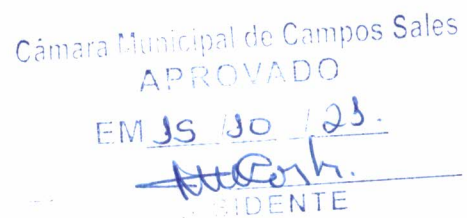 Câmara Municipal de Campos Sales
APROVADO
EM 15 / 10 / 21.
SIDENTE